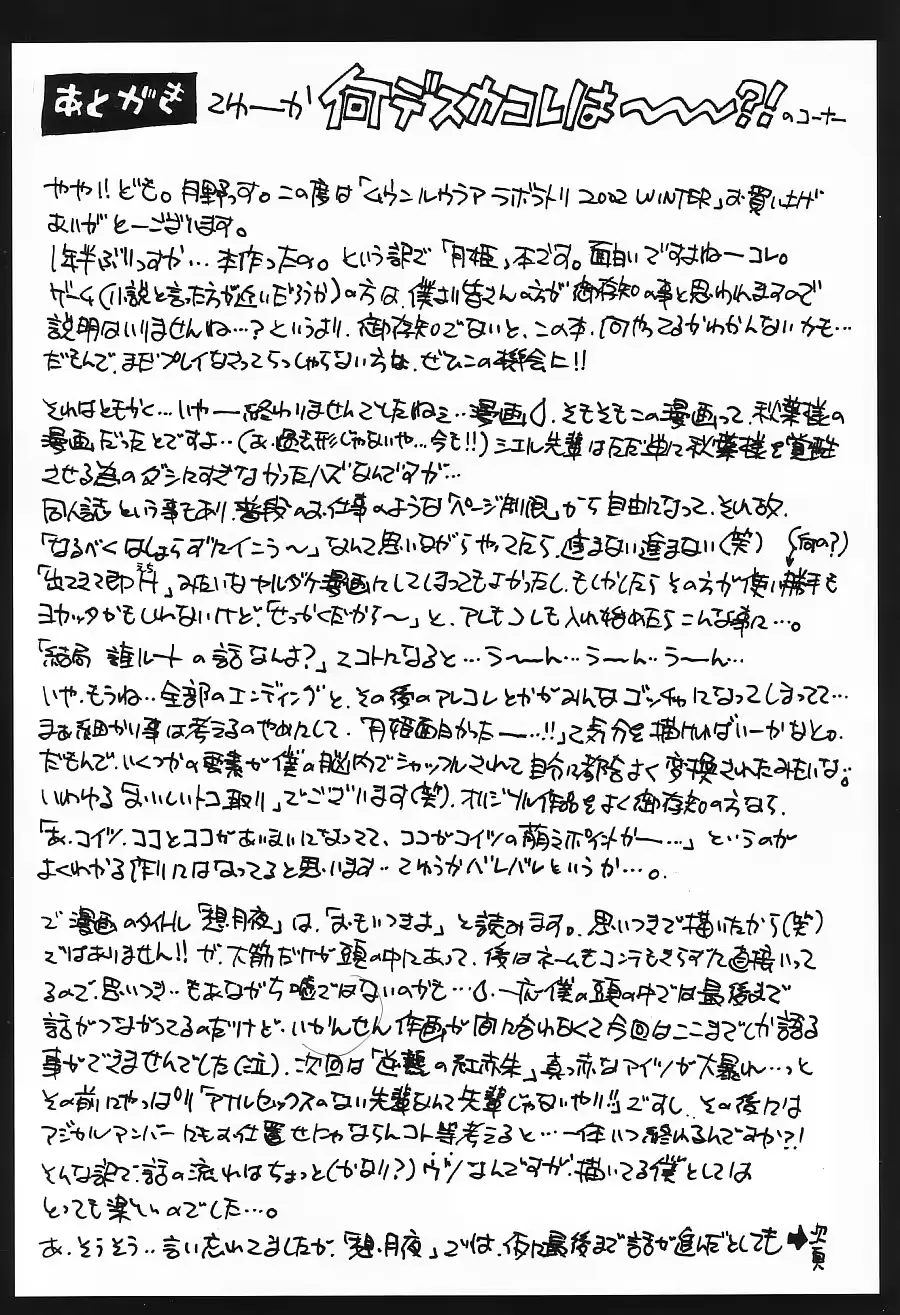 あとがき てゆーか 何デスカコレは～～～?! のコーナー
やや!!ども。月野っす。この度は「ムウンルウラア ラボラトリ 2002 WINTER」お買い上げ
ありがとーございます。
1年半ぶりっすか…本作ったの。という訳で「月姫」本です。面白いですよねーコレ。
ゲーム(小説と言った方が近いだろうか)の方は、僕より皆さんの方が御存知の事と思われますので
説明はいりませんね…?というより、御存知でないと、この本、何やってるかわかんないかも…
だもんで、まだプレイなさってらっしゃらない方は、ぜひこの機会に!!
それはともかく…いやー終わりませんでしたねェ…漫画。そもそもこの漫画って、秋葉様の
漫画だったとですよ…(あ、過去形じゃないや…今も!!)シエル先輩はただ単に秋葉様を覚醒
させる為のダシにすぎなかったハズなんですが…
同人誌という事もあり、普段のお仕事のような「ページ制限」から自由になって、それ故、
「なるべくはしょらずにイこう～」なんて思いながらやってたら、進まない進まない(笑) (何の?)
「出てきて即H」みたいなヤルダケ漫画にしてしまってもよかったし、もしかしたらその方が使い勝手も
ヨカッタかもしれないけど、「せっかくだから～」と、アレもコレも入れ始めたらこんな事に…。
「結局 誰ルートの話なんよ?」てコトになると…う～～ん…う～ん‥う～ん…
いや、もうね‥全部のエンディングと、その後のアレコレとかがみんなゴッチャになってしまってて…
まぁ細かい事は考えるのやめにして、「月姫面白かったー…!!」て気分を描ければいーかなとか。
だもんで、いくつかの要素が僕の脳内でシャッフルされて自分に都合よく変換されたみたいな。
いわゆる「おいしいトコ取り」でございます(笑)。オリジナル作品をよく御存知の方なら、
「あ、コイツ、ココとココがあいまいになってて、ココがコイツの萌えポイントかー…」というのが
よくわかる作りにはなってると思います…てゆうかバレバレというか…。
で、漫画のタイトル「想月夜」は、「おもいつきよ」と読みます。思いつきで描いたから(笑)
ではありません!!が、大筋だけが頭の中にあって、後はネームもコンテもきらずに直接いって
るので、思いつき‥もあながち嘘ではないのかも…。一応僕の頭の中では最後まで
話がつながってるのだけど、いかんせん作画が間に合わなくて今回はここまでしか語る
事ができませんでした(泣)。次回は「逆襲の紅赤朱」真っ赤なアイツが大暴れ…っと
その前にやっぱり「アナルセックスのない先輩なんて先輩じゃないやい!!」ですし、その後には
マジカルアンバーにもお仕置せにゃならんコト等考えると…一体いつ終わるんですか?!
そんな訳で、話の流れはちょっと(かなり?)ヴツなんですが、描いてる僕としては
とっても楽しいのでした…。
あ、そうそう‥言い忘れてましたが、「想月夜」では、仮に最後まで話が進んだとしても➡次頁